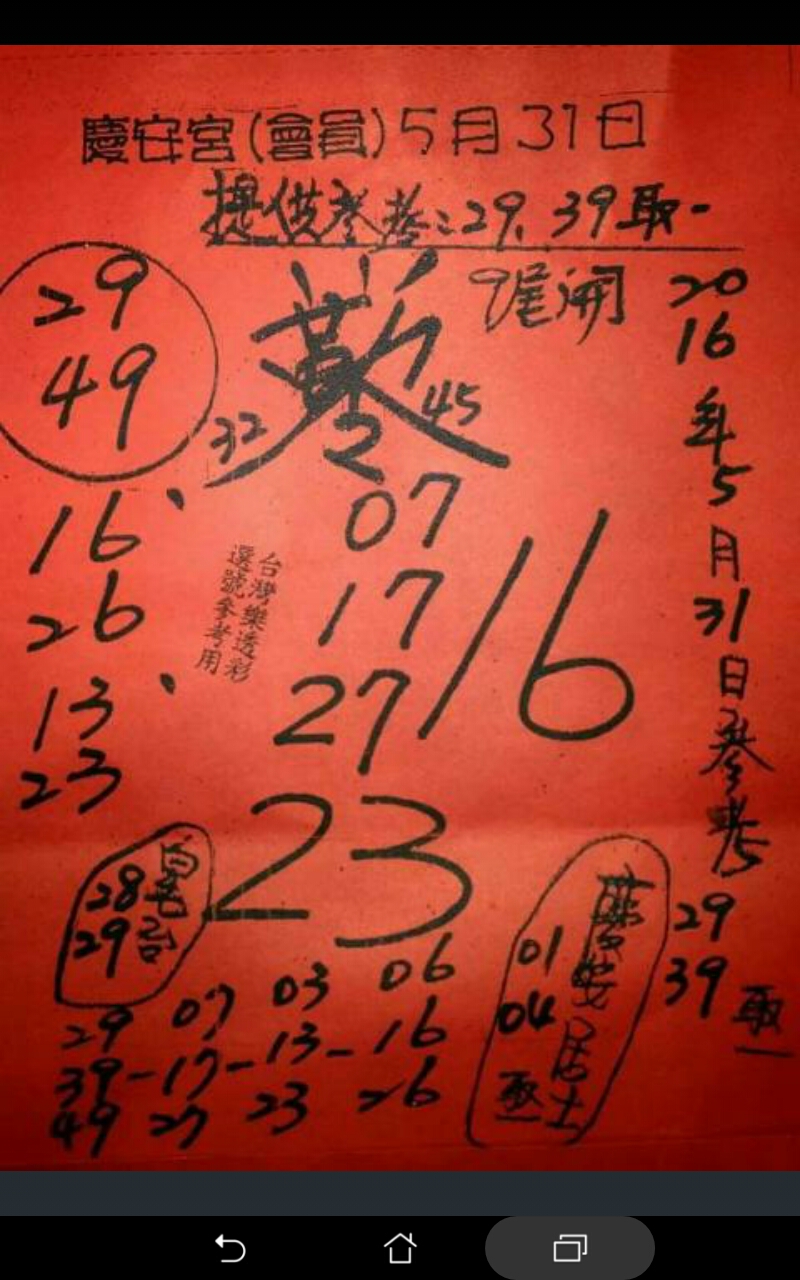 慶安宮(會員)5月31日
提供參考:29、39取一
9尾開
29
49
32
45
2016年5月31日參考
29
39
取一
07
17
27
16
16、
26
13、
23
台灣樂透彩
選號參考用
23
28
29
慶安居士
01
04
取一
29 07 03 06
39-17-13-16
49 27 23 26